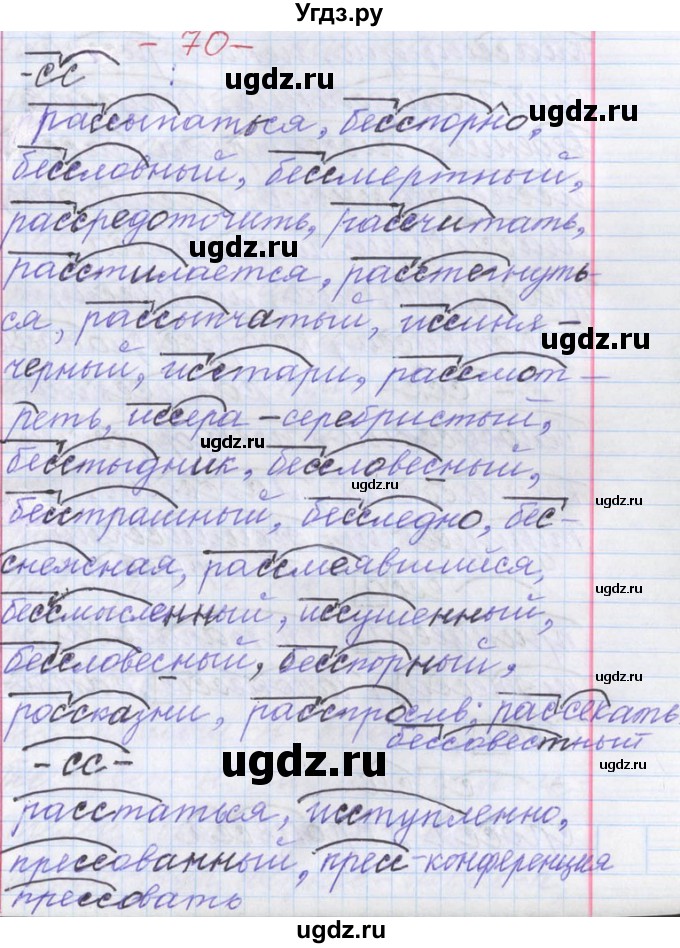 Угдз.ру
- 70 -
-сс :
ugdz.ru
рассыпаться, бесспорно,
бессловный, бессмертный,
ugdz.ru ugdz.ru
рассредоточить, рассчитать,
ugdz.ru
расстилается, расстегнуть-
ся, рассыпчатый, иссиня-
ugdz.ru
черный, исстари, рассмот-
реть, иссера-серебристый,
ugdz.ru
бесстыдник, бессловесный,
ugdz.ru
ugdz.ru
бесстрашный, бесследно, бес-
снежная, рассмеявшийся,
ugdz.ru
бессмысленный, иссушенный,
бессловесный, бесспорный,
ugdz.ru
россказни, расспросив; рассекать
бессовестный
-сс-
ugdz.ru
расстаться, исступленно,
прессованный, пресс-конференция
прессовать
ugdz.ru
ugdz.ru